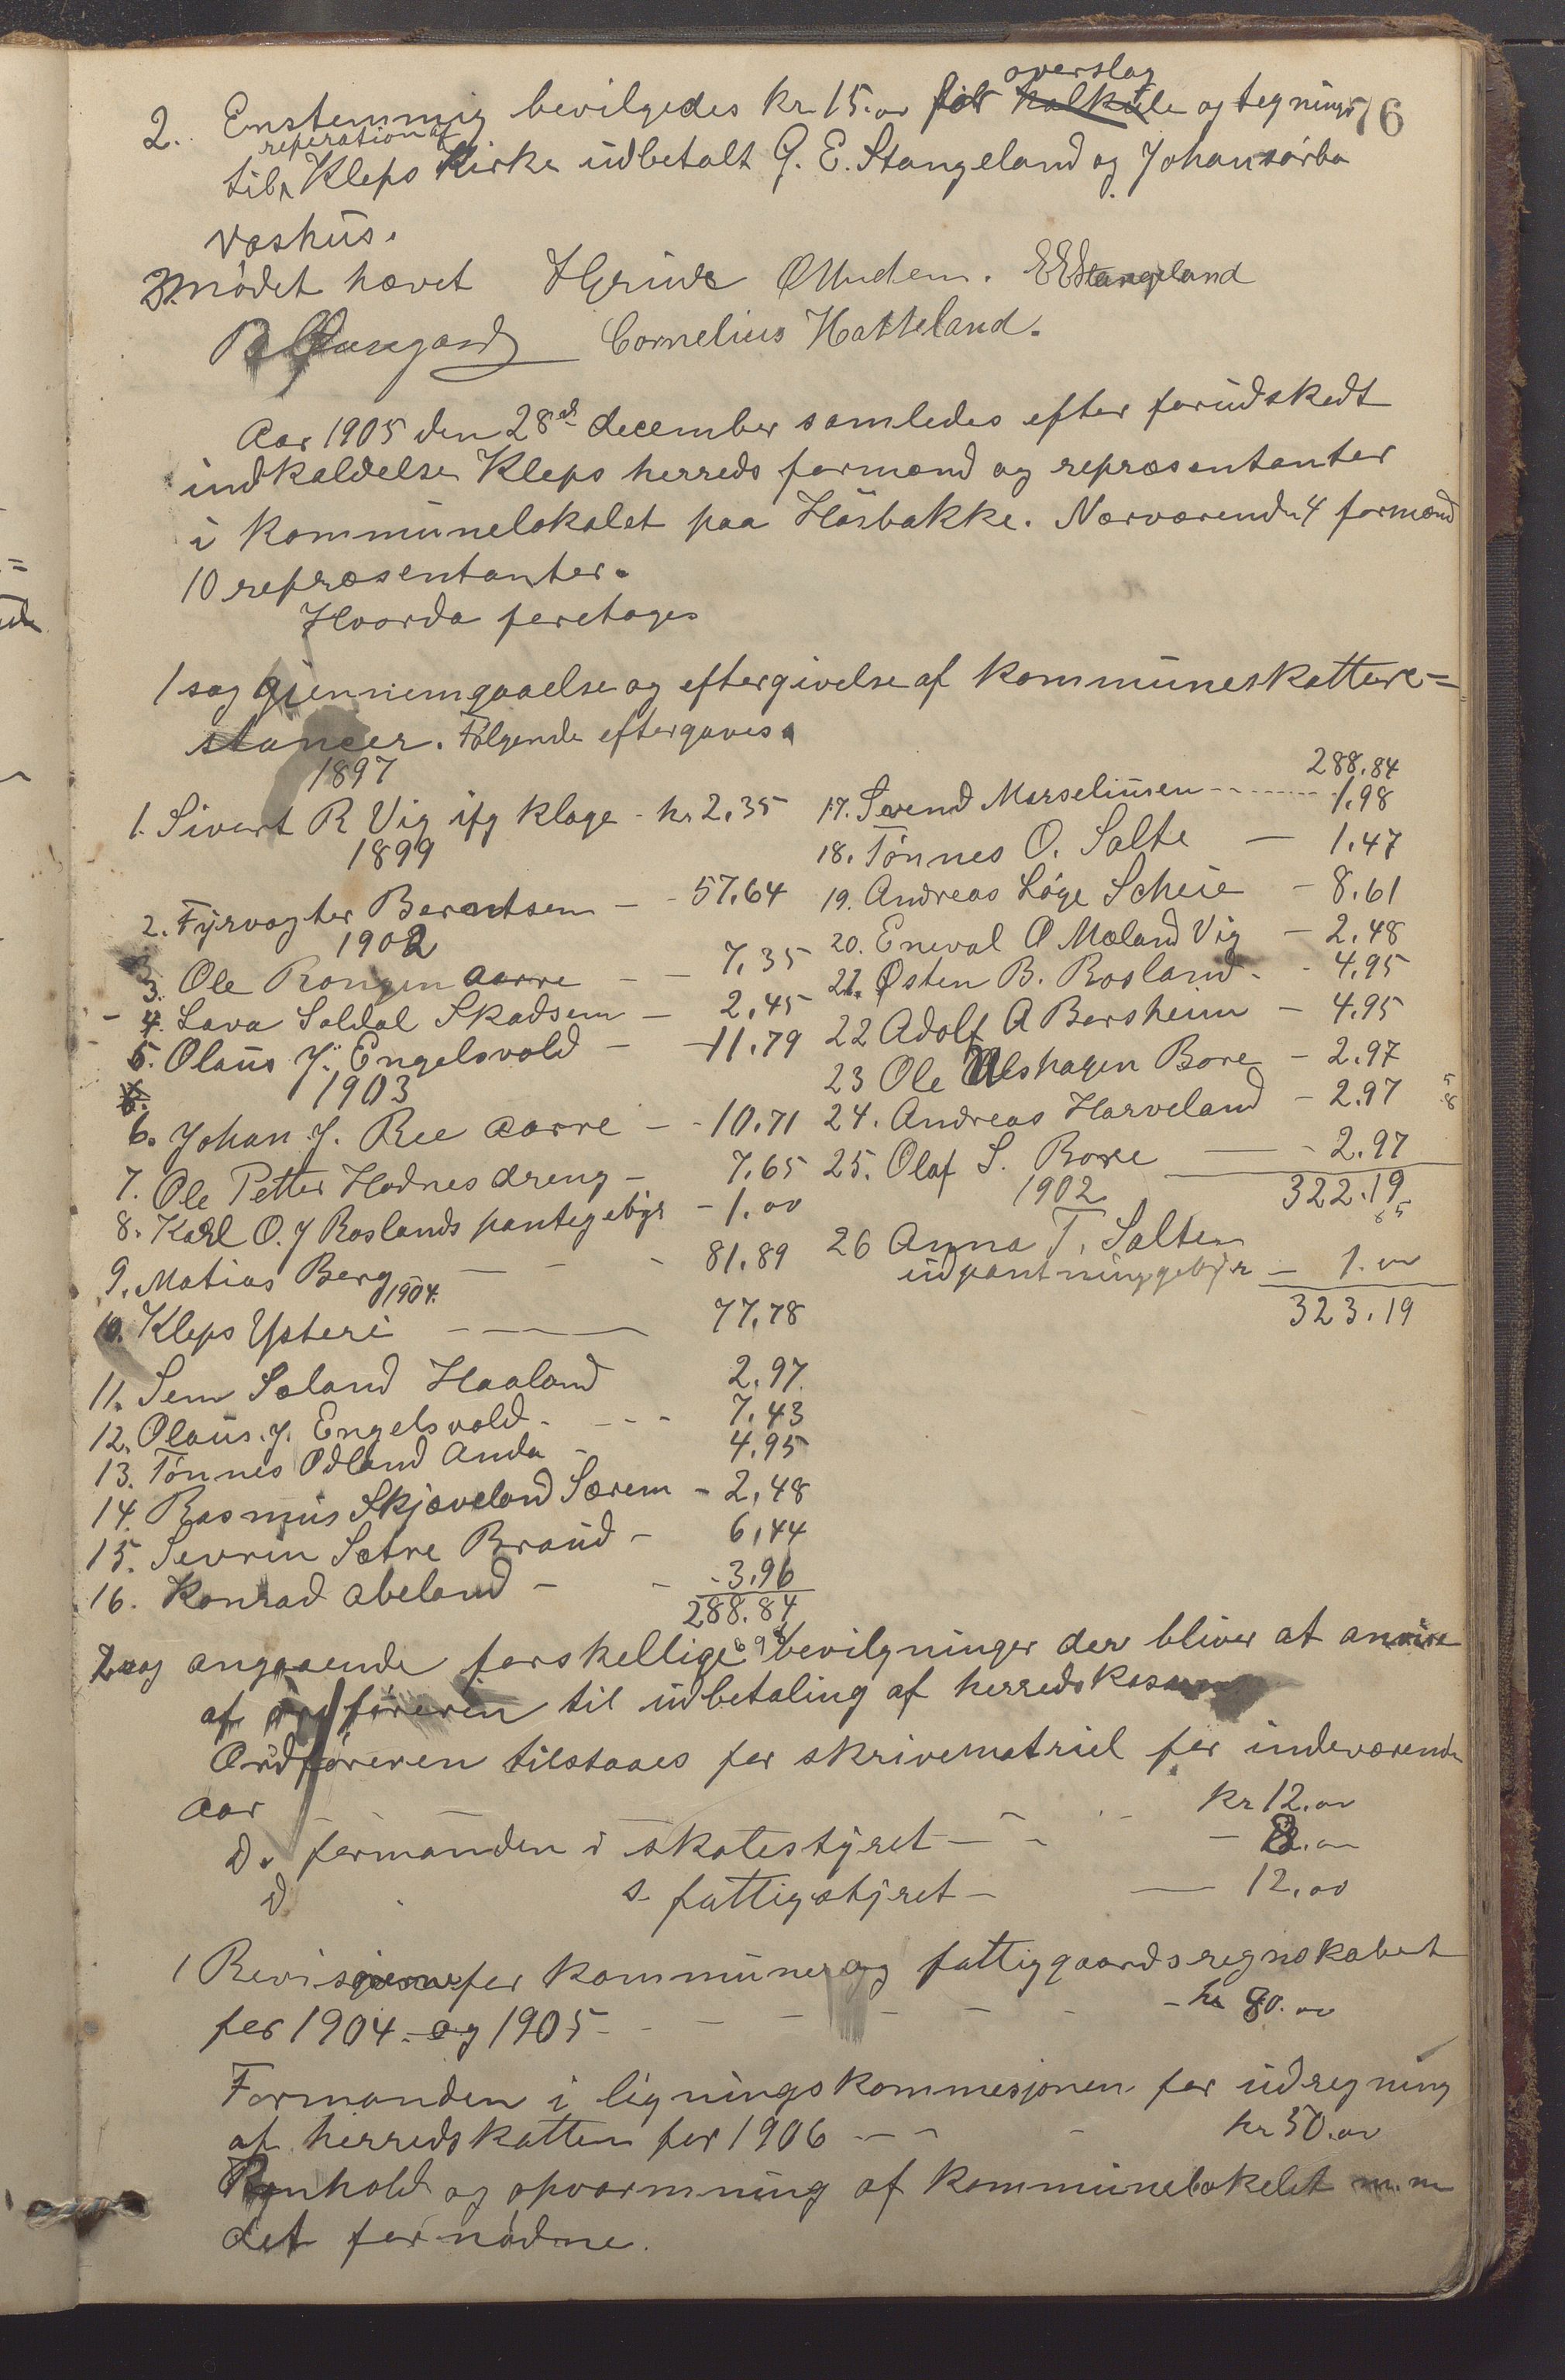 76
2. Enstemmig bevilgedes kr 15.00 for overslag og tegning
til reperation af Kleps Kirke udbetalt G. E. Stangeland og Johan sørbø
voshus.
3. mødet hævet H Grude O Undem. E E Stangeland
Cornelius Hatteland.
Aar 1905 den 28de december samledes efter forudskedt
indkaldelse Kleps herreds formænd og repræsentanter
i kommunelokalet paa Hôsbakke. Nærværende 4 formænd
10 repræsentanter.
Hvorda foretoges
1 sag gjennemgaaelse og eftergivelse af kommuneskattere=
stancer. Følgende eftergaves.
1897
1. Sivert R Vig ifg klage - kr 2,35
1899
2. Fyrvogter Berentsen - - 57.64
1902
3. Ole Rongen Aarre - - 7,35
4. Lava Soldal Skadsem - 2,45
5. Olaus J. Engelsvold - - 11.79
1903
6. Johan J. Ree Aarre - - 10.71
7. Ole Petter Hodnes dreng - 7.65
8. Karl O. J Roslands pantegebyr - 1.00
9. Matias Berg - - - 81.89
1904.
10. Kleps Ysteri - - - 77.78
11. Sem Soland Haaland 2.97
12. Olaus. J. Engelsvold - - - - 7.43
13. Tønnes Odland Anda - 4.95
14. Rasmus Skjæveland Særem - 2,48
15. Sevrin Sætre Braud - 6,44
16. Konrad Abeland - - - 3,96
288.84
288.84
17. Svend Marseliusen - - - - - 1,98
18. Tønnes O. Salte - 1.47
19. Andreas Løge Scheie - 8.61
20. Eneval O Mæland Vig - 2.48
21. Østen B. Rosland - - 4.95
22 Adolf A Bersheim - 4.95
23 Ole Ulshagen Bore - 2.97
24. Andreas Harveland - 2.97
25. Olaf S. Bore - 2.97
322.19
1902
26 Anna T. Salte
udpantningsgebyr - 1.00
323.19
2 sag angaaende forskellige bevilgninger der bliver at anvise
af ordføreren til udbetaling af herredskassen
Ordføreren tilstaaes for skrivematriel for indeværende
aar kr 12.00
Do formanden i skatestyret - - - 8.00
D s. fattigstyret - - 12.00
1 Revisjonen for kommune og fattiggaardsregnskabet
for 1904 og 1905 - - - - kr 80.00
Formanden i ligningskommesjonen for udregning
af herredskatten for 1906 - - - kr 50.00
Renhold og opvarmning af kommunelokelet m.m
det fornødne.